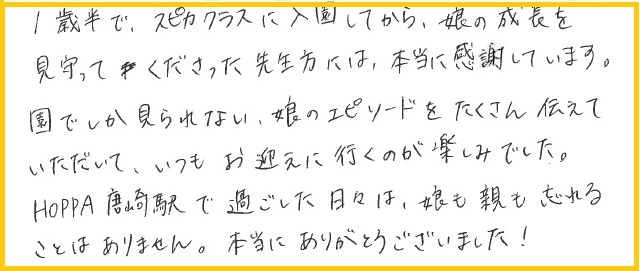 1歳半で、スピカクラスに入園してから、娘の成長を
見守ってくださった先生方には、本当に感謝しています。
園でしか見られない、娘のエピソードをたくさん伝えて
いただいて、いつもお迎えに行くのが楽しみでした。
HOPPA唐崎駅で過ごした日々は、娘も親も忘れる
ことはありません。本当にありがとうございました!